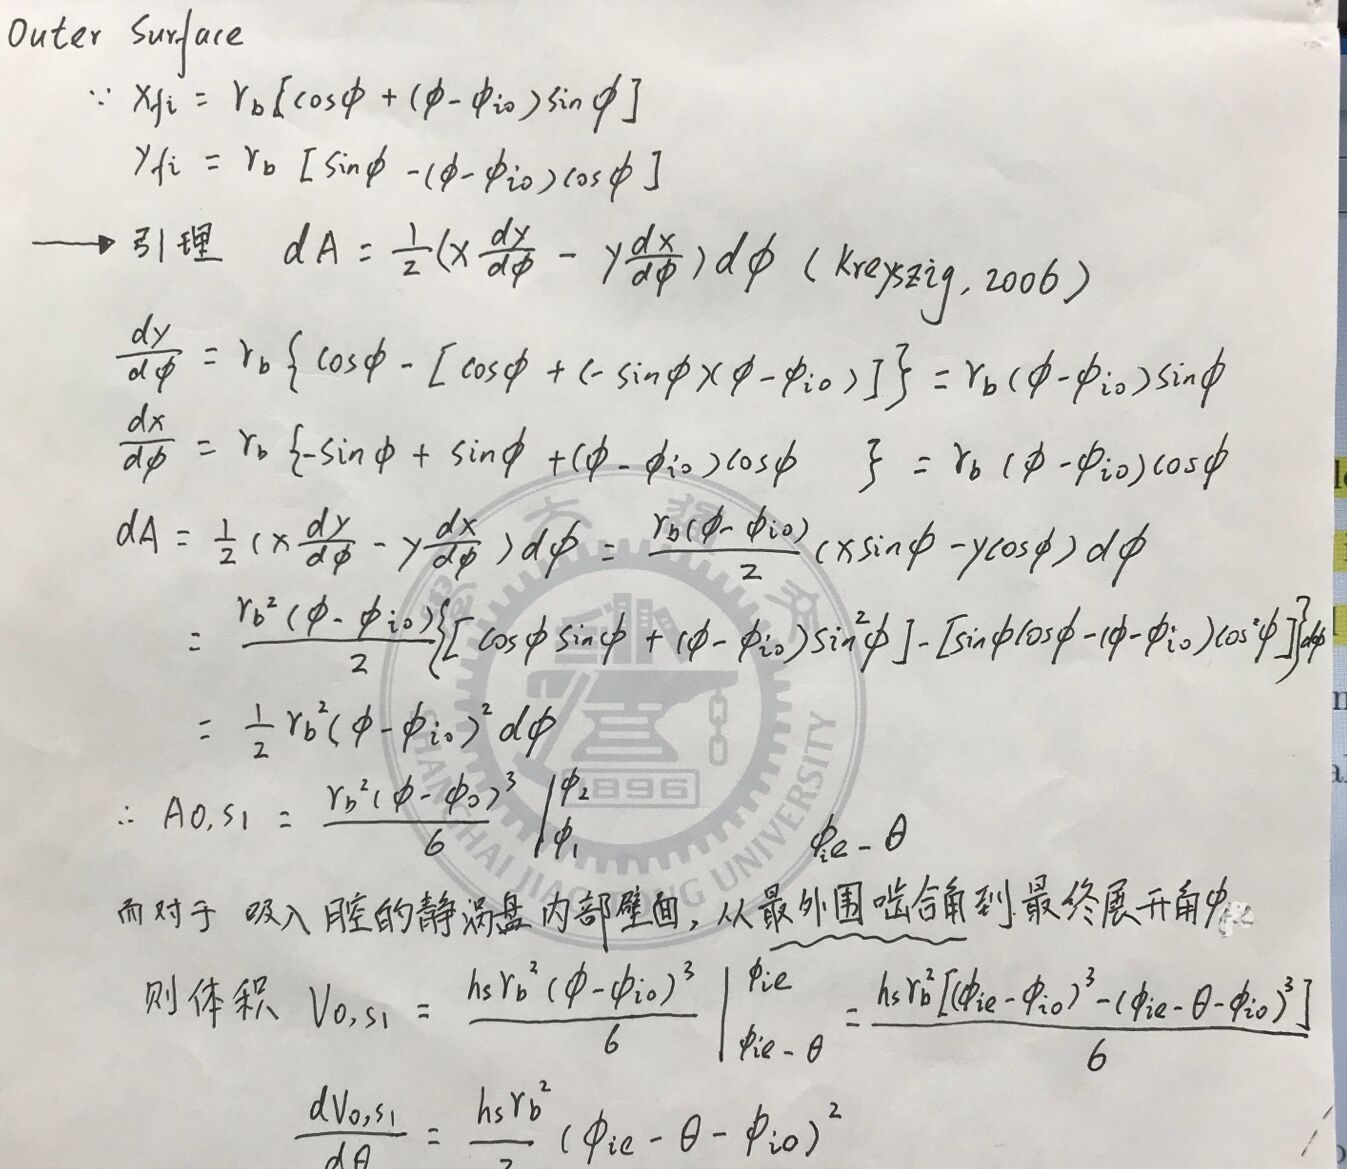 Outer Surface
∵ x_fi = r_b[cosϕ + (ϕ-ϕ_io)sinϕ]
y_fi = r_b [sinϕ -(ϕ-ϕ_io)cosϕ]
→ 引理 dA = 1/2(x dy/dϕ - y dx/dϕ)dϕ (Kreyszig, 2006)
dy/dϕ = r_b{cosϕ - [cosϕ + (-sinϕ)(ϕ-ϕ_io)]} = r_b(ϕ-ϕ_io)sinϕ
dx/dϕ = r_b{-sinϕ + sinϕ +(ϕ-ϕ_io)cosϕ } = r_b(ϕ-ϕ_io)cosϕ
dA = 1/2(x dy/dϕ - y dx/dϕ)dϕ = r_b(ϕ-ϕ_io)/2 (xsinϕ-ycosϕ)dϕ
= r_b²(ϕ-ϕ_io)/2 {[cosϕsinϕ + (ϕ-ϕ_io)sin²ϕ]-[sinϕcosϕ-(ϕ-ϕ_io)cos²ϕ]}dϕ
= 1/2 r_b²(ϕ-ϕ_io)²dϕ
∴ A_0,s1 = r_b²(ϕ-ϕ_0)³/6 |ϕ_2 ϕ_1
ϕ_ie - θ
而对于 吸入腔的静涡盘内部壁面，从最外围啮合角到最终展开角ϕ
则体积 V_0,s1 = h_s r_b²(ϕ-ϕ_io)³/6 |ϕ_ie ϕ_ie-θ = h_s r_b²[(ϕ_ie-ϕ_io)³-(ϕ_ie-θ-ϕ_io)³]/6
dV_0,s1/dθ = h_s r_b²/2 (ϕ_ie-θ-ϕ_io)²
SHANGHAI JIAO TONG UNIVERSITY
1896